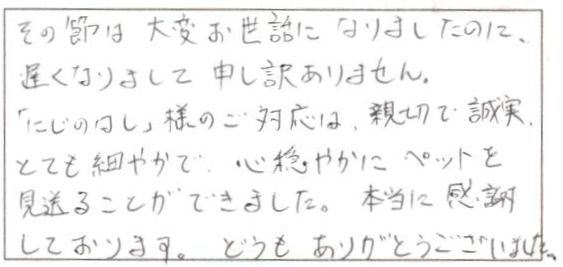 その節は 大変お世話に なりましたのに、
遅くなりまして 申し訳ありません。
「にじのはし」様のご対応は、親切で誠実、
とても細やかで、心穏やかに ペットを
見送ることができました。 本当に感謝
しております。 どうも ありがとうございました。